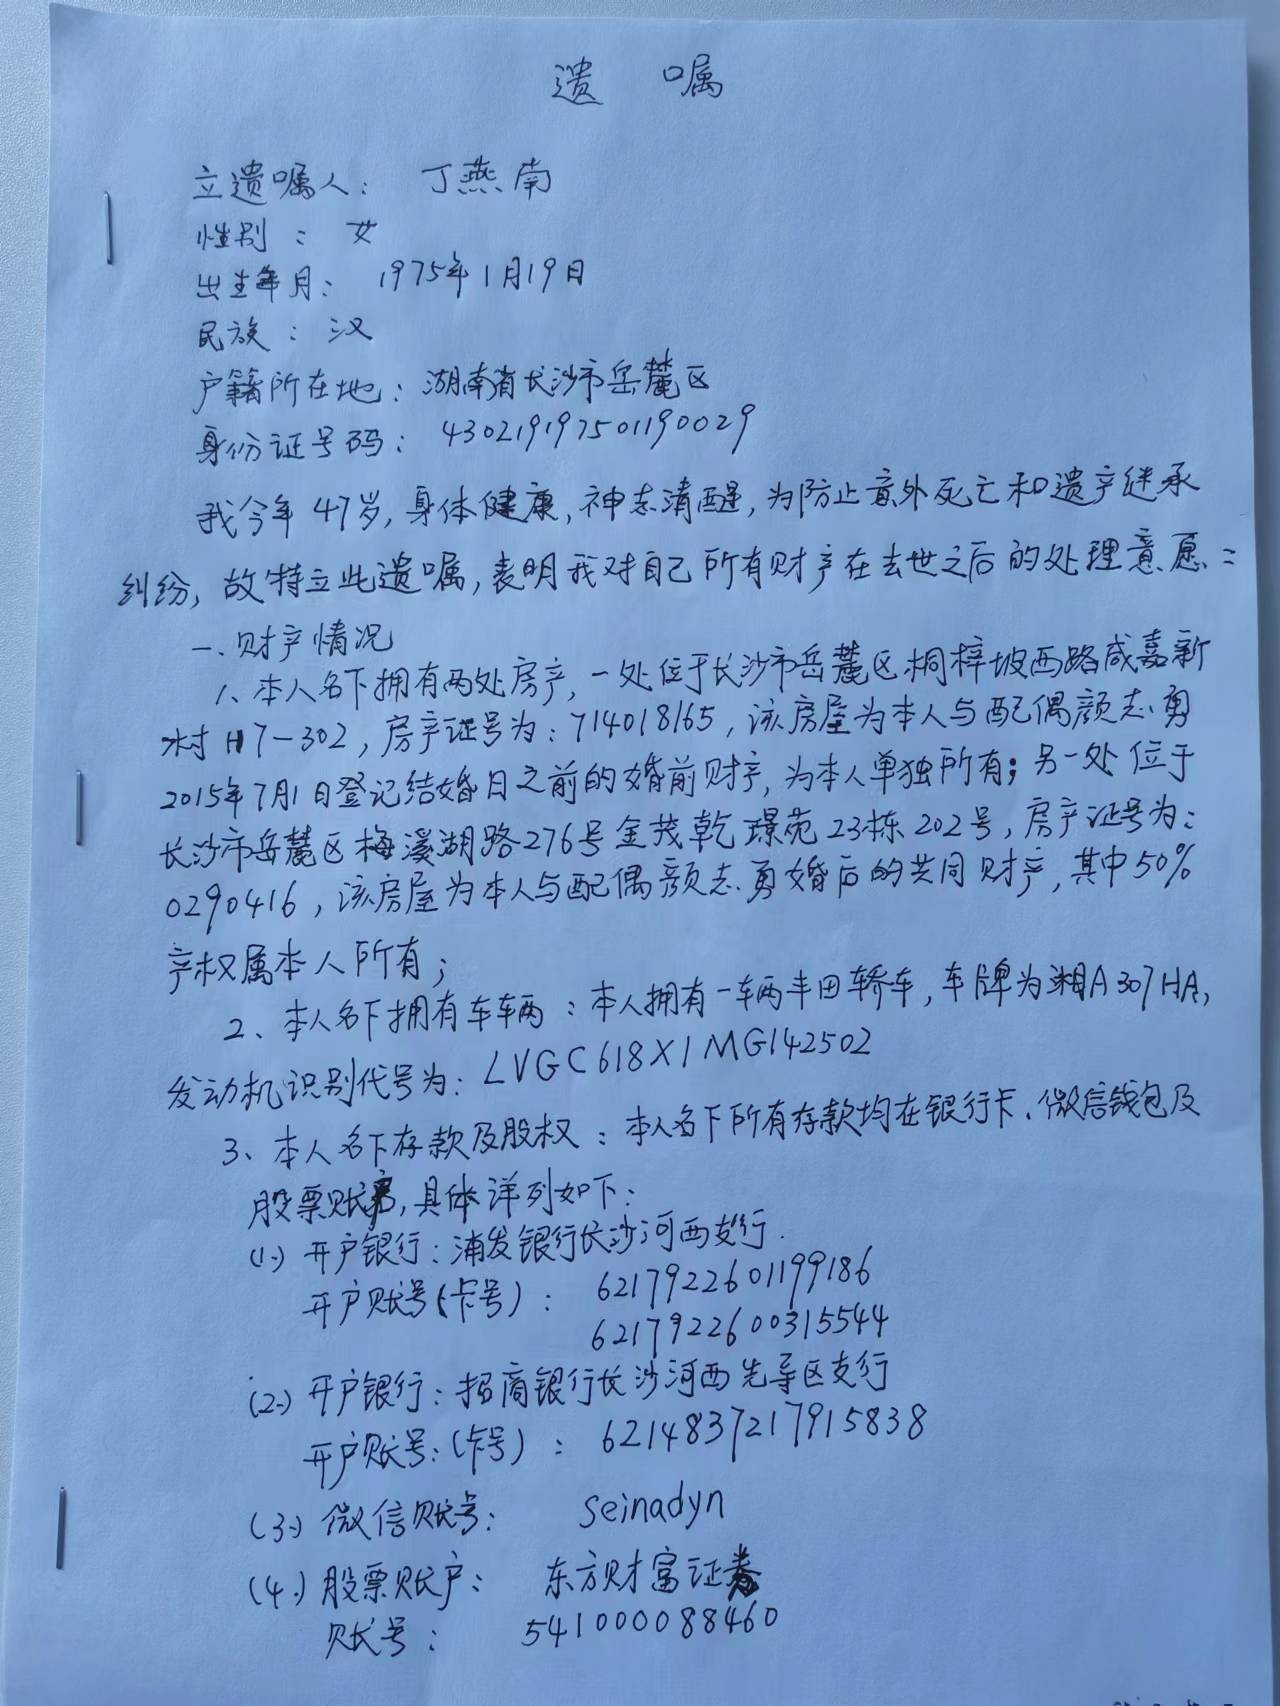 遗 嘱
立遗嘱人： 丁燕南
性别 ： 女
出生年月： 1975年1月19日
民族 ：汉
户籍所在地：湖南省长沙市岳麓区
身份证号码： 430219197501190029
我今年47岁,身体健康,神志清醒,为防止意外死亡和遗产继承
纠纷，故特立此遗嘱,表明我对自己所有财产在去世之后的处理意愿：
一、财产情况
1、本人名下拥有两处房产，一处位于长沙市岳麓区桐梓坡西路咸嘉新
村H7-302，房产证号为：714018165，该房屋为本人与配偶颜志勇
2015年7月1日登记结婚日之前的婚前财产，为本人单独所有；另一处位于
长沙市岳麓区梅溪湖路276号金茂乾璟苑23栋202号，房产证号为：
0290416，该房屋为本人与配偶颜志勇婚后的共同财产，其中50%
产权属本人所有；
2、本人名下拥有车辆：本人拥有一辆丰田轿车，车牌为湘A307HA，
发动机识别代号为：LVGC618X1MG142502
3、本人名下存款及股权：本人名下所有存款均在银行卡、微信钱包及
股票账户，具体详列如下：
(1.) 开户银行：浦发银行长沙河西支行.
开户账号(卡号)： 6217922601199186
6217922600315544
(2.) 开户银行：招商银行长沙河西先导区支行
开户账号：(卡号)： 6214837217915838
(3.) 微信账号： Seinadyn
(4.) 股票账户： 东方财富证券
账号： 541000088460